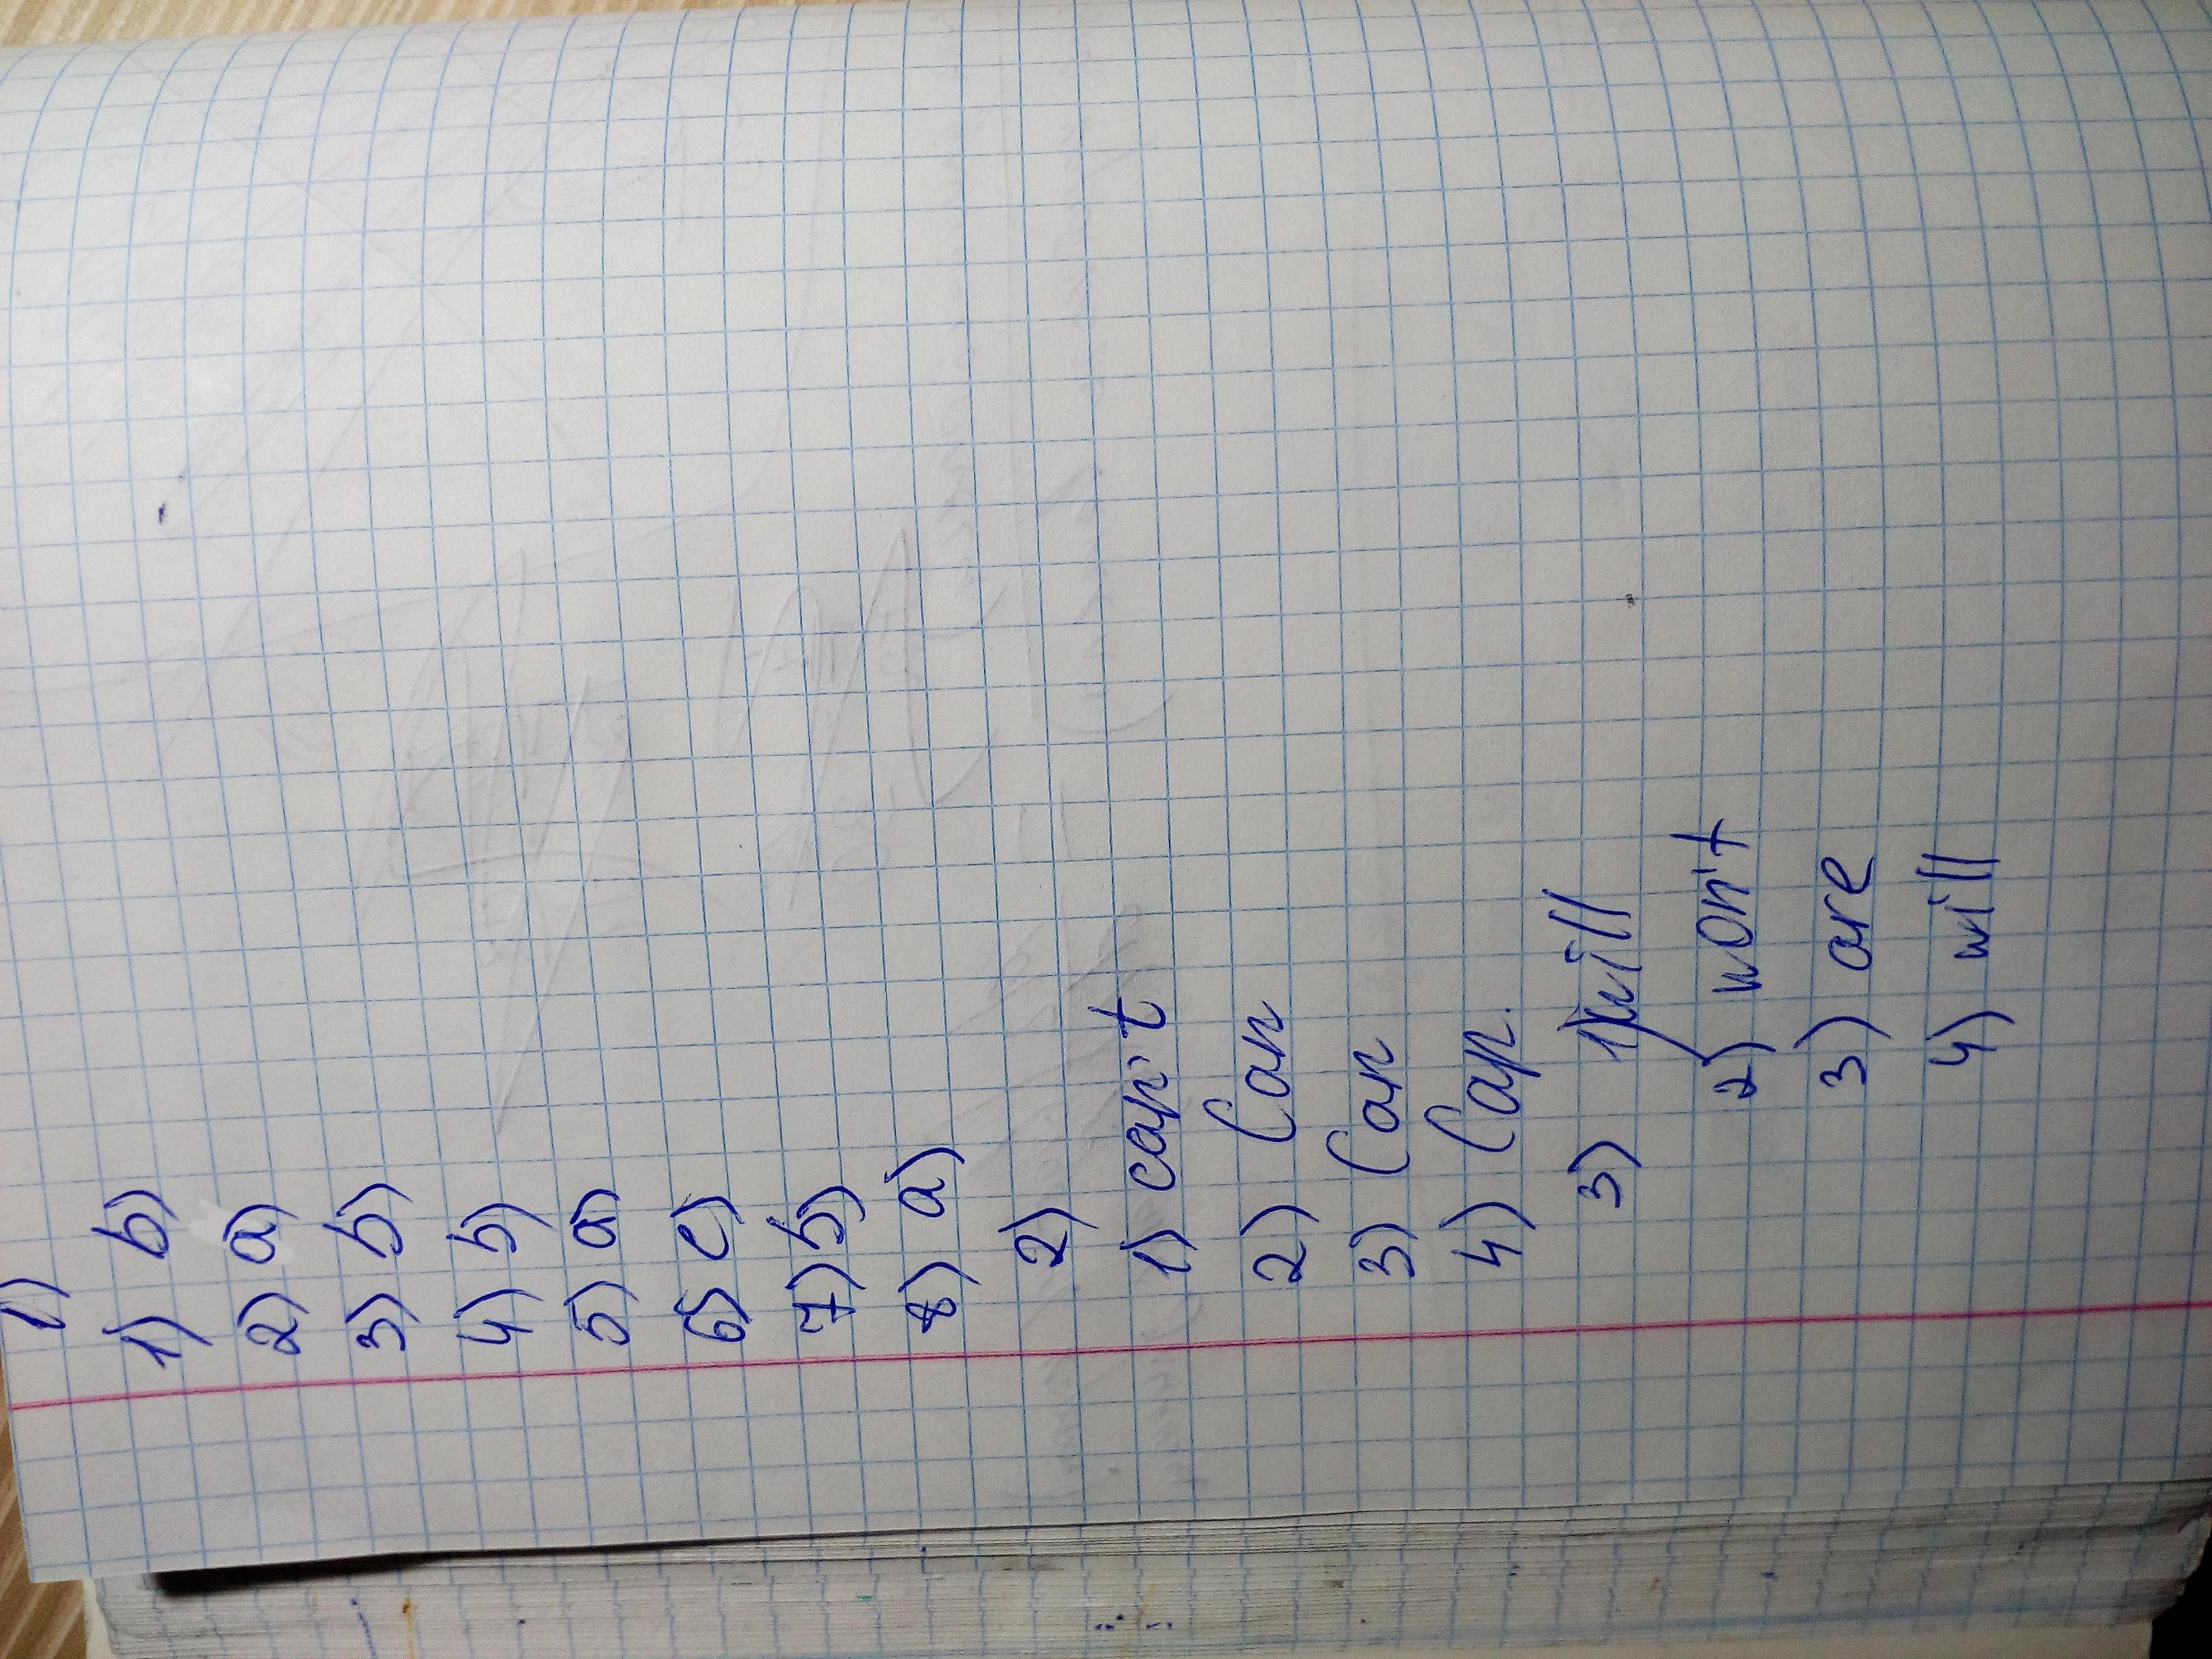 1)
1) b)
2) a)
3) b)
4) b)
5) a)
6) c)
7) b)
8) a)
2)
1) can't
2) Can
3) Can
4) Can.
3) 1) will
2) won't
3) are
4) will